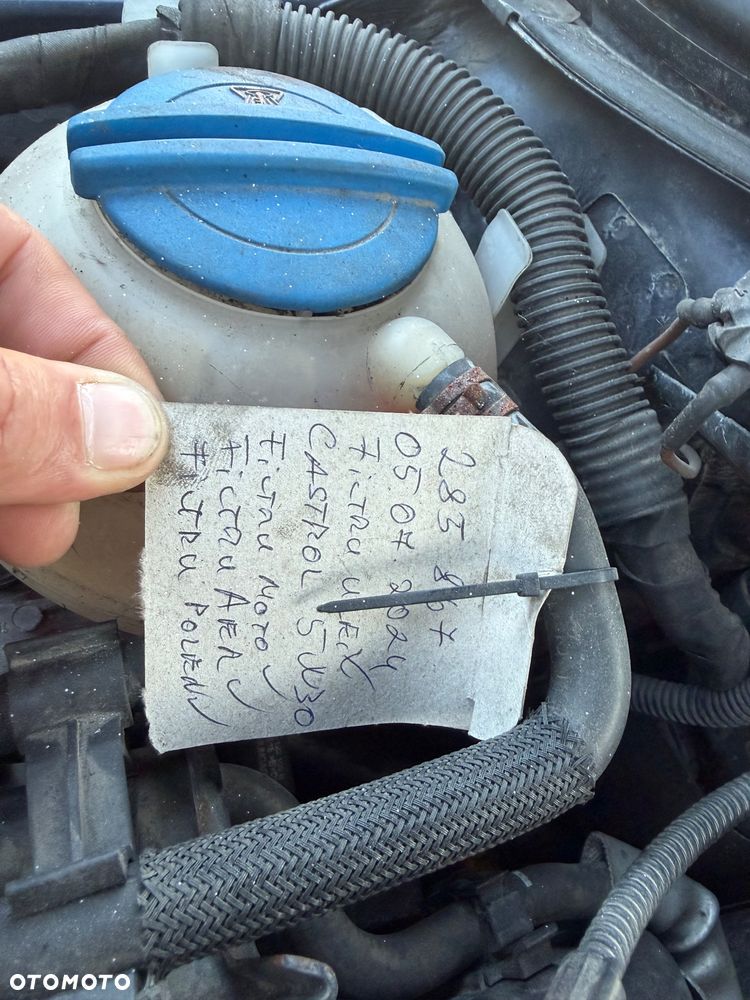 283 867
05.07.2024
FILTRU ULEI ✓
CASTROL 5W30
FILTRU MOTO ✓
FILTRU AER ✓
FILTRU POLEN ✓
OTOMOTO